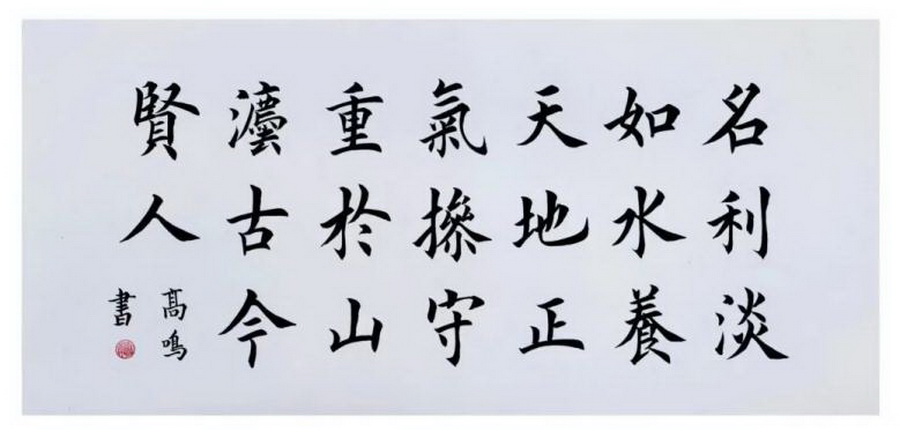 名利淡
如水養
天地正
氣摻守
重於山
灋古今
賢人
高鳴
書